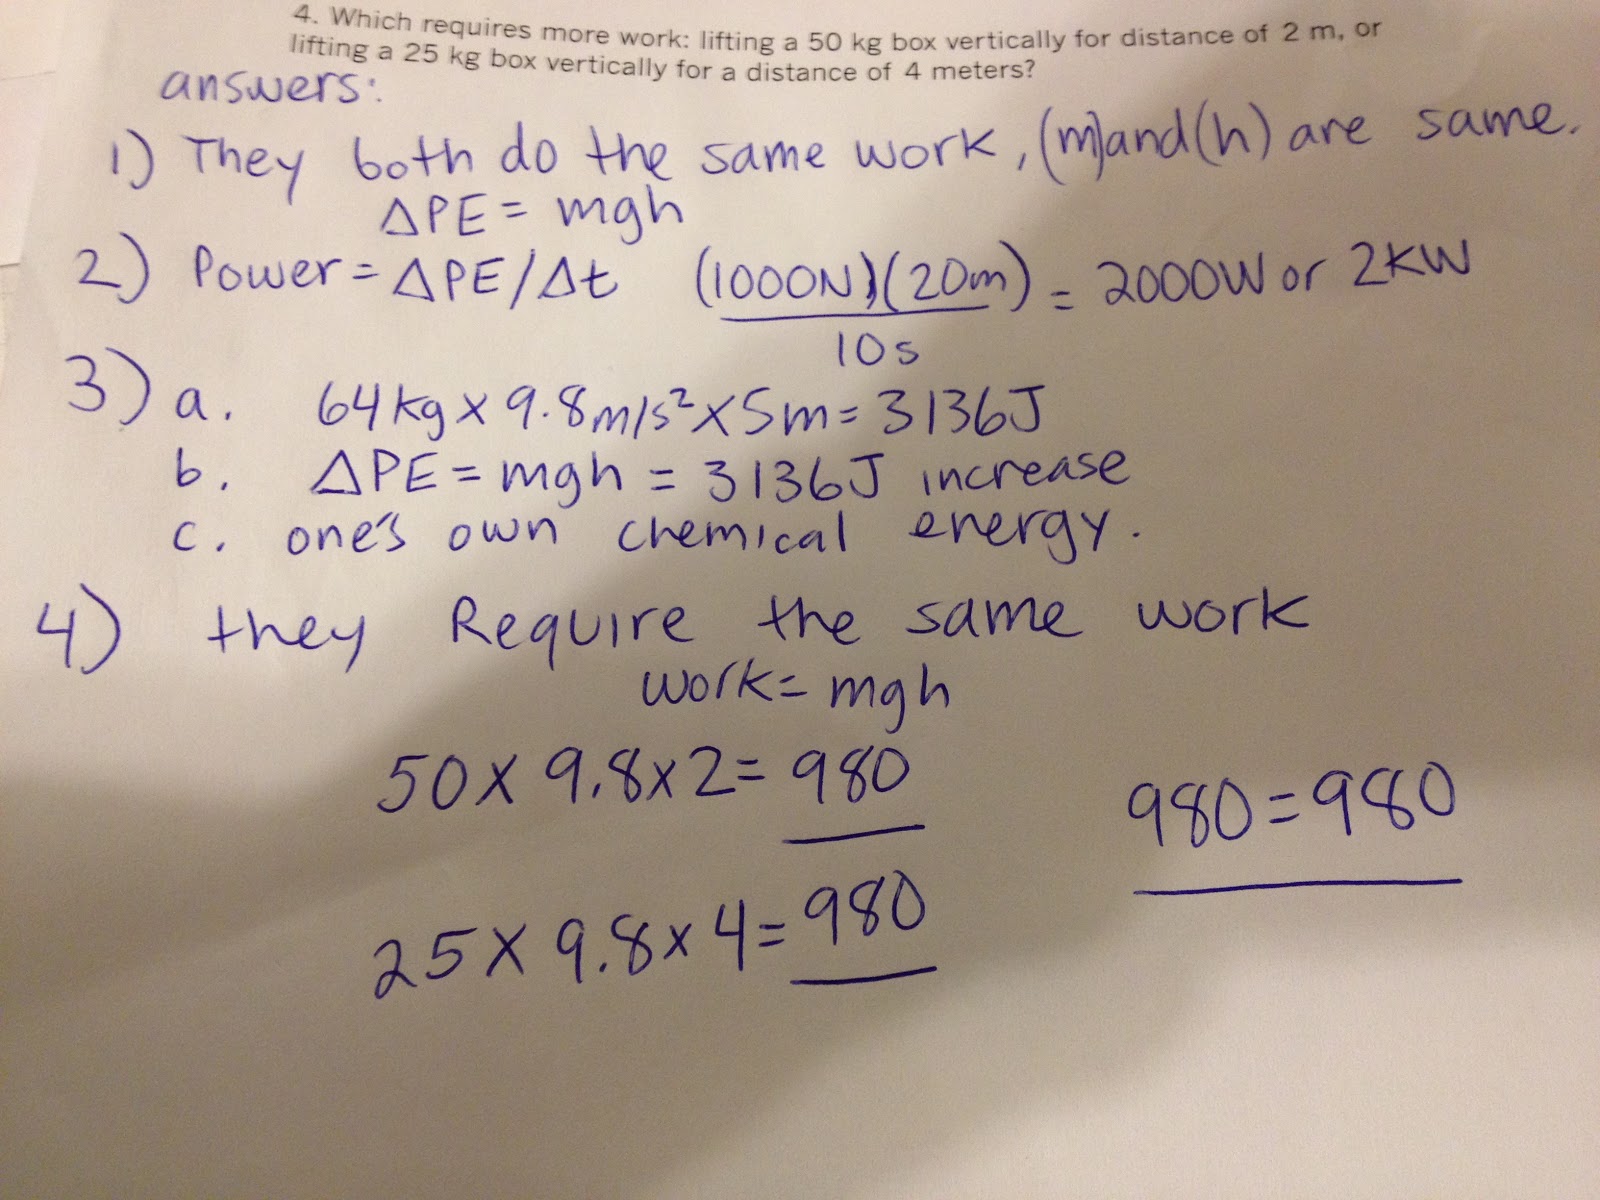 4. Which requires more work: lifting a 50 kg box vertically for distance of 2 m, or
lifting a 25 kg box vertically for a distance of 4 meters?
answers:
1) They both do the same work, (m)and(h) are same.
ΔPE = mgh
2) Power = ΔPE/Δt (1000N)(20m) = 2000W or 2KW
10s
3) a. 64kg x 9.8m/s² x 5m = 3136J
b. ΔPE = mgh = 3136J increase
c. one's own chemical energy.
4) they Require the same work
work = mgh
50 x 9.8 x 2 = 980
980 = 980
25 x 9.8 x 4 = 980